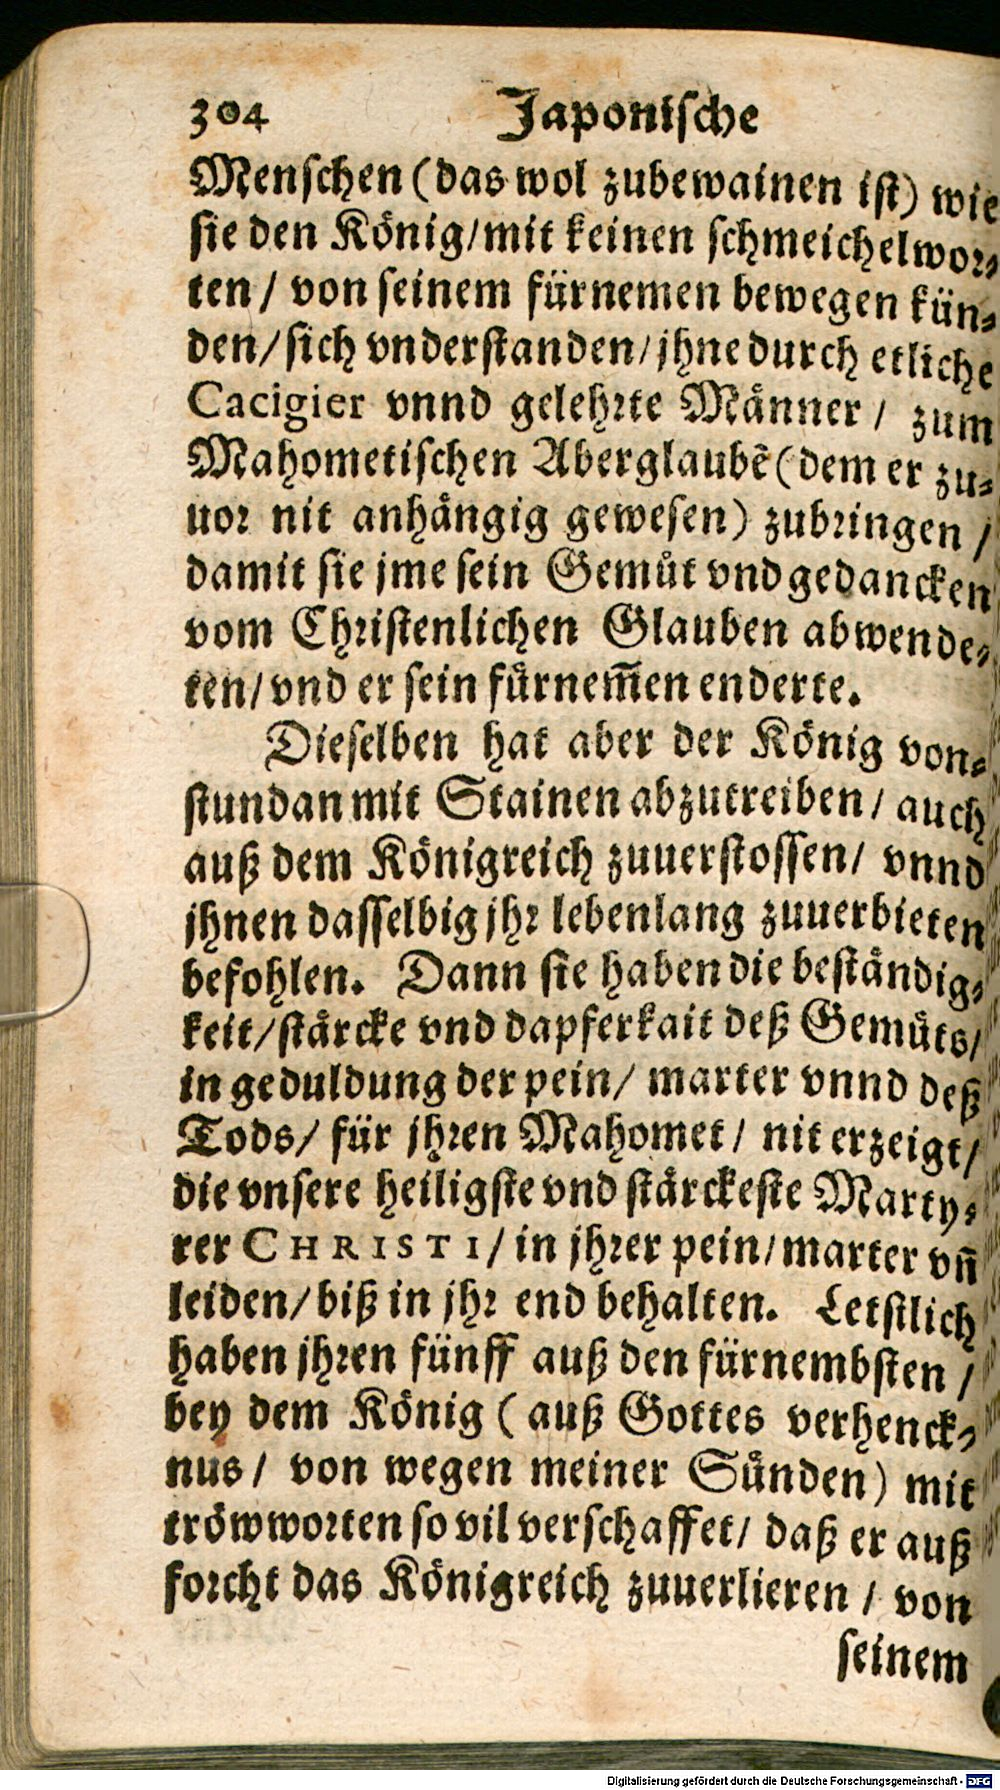 304 Japonische
Menschen (das wol zubewainen ist) wie
sie den König/mit keinen schmeichelwor-
ten / von seinem fürnemen bewegen kün-
den/sich vnderstanden/jhne durch etliche
Cacigier vnnd gelehrte Männer / zum
Mahometischen Aberglaubẽ (dem er zu-
uor nit anhängig gewesen) zubringen /
damit sie jme sein Gemüt vnd gedancken
vom Christenlichen Glauben abwende-
ten/ vnd er sein fürnem̃en enderte.
Dieselben hat aber der König von-
stundan mit Stainen abzutreiben/ auch
auß dem Königreich zuuerstossen/ vnnd
jhnen dasselbig jhr lebenlang zuuerbieten
befohlen. Dann sie haben die beständig-
keit/stärcke vnd dapferkait deß Gemüts/
in geduldung der pein/ marter vnnd deß
Tods/ für jhren Mahomet/ nit erzeigt/
die vnsere heiligste vnd stärckeste Marty-
rer CHRISTI/ in jhrer pein/marter vñ
leiden/ biß in jhr end behalten. Letstlich
haben jhren fünff auß den fürnembsten /
bey dem König ( auß Gottes verhenck-
nus/ von wegen meiner Sünden) mit
tröwworten so vil verschaffet/ daß er auß
forcht das Königreich zuuerlieren / von
seinem
Digitalisierung gefördert durch die Deutsche Forschungsgemeinschaft - DFG